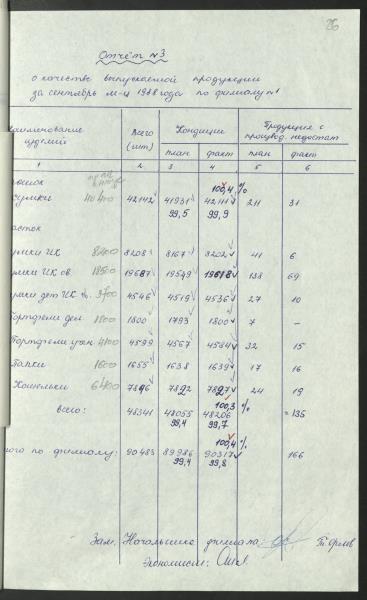 26
Отчёт №3
о качестве выпускаемой продукции
за сентябрь м-ц 1988 года по филиалу №1
наименование изделий всего (шт) Кондиция Продукция с производ. недостат
план факт план факт
1 2 3 4 5 6
100,4 %
сумки 40400 42142 41931 42111 211 31
99,5 99,9
сумки ИК 8200 8208 8167 8202 41 6
сумки ИК ов. 18500 19687 19549 19618 138 69
сумки дет ИК 3700 4546 4519 4536 27 10
Портфели дел 1800 1800 1793 1800 7 -
Портфели учен 4100 4599 4567 4584 32 15
Папки 1600 1655 1638 1639 17 16
Кошельки 6400 7846 7822 7827 24 19
100,3 %
всего: 48341 48055 48206 = 135
99,4 99,7
100,4 %
ого по филиалу: 90483 89986 90317 166
99,4 99,8
Зам. Начальника филиала:
Экономист: